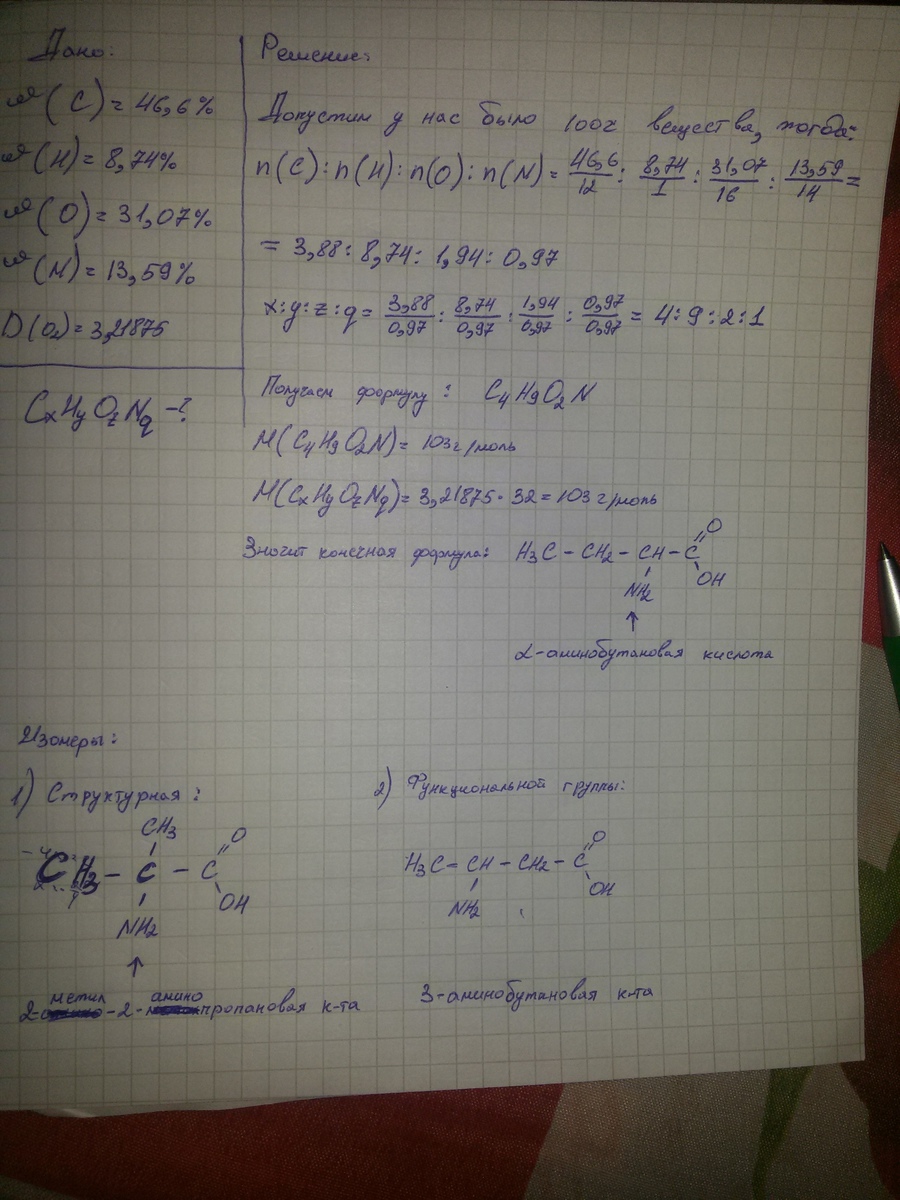 Дано:
ω(C) = 46,6%
ω(H) = 8,74%
ω(O) = 31,07%
ω(N) = 13,59%
D(O₂) = 3,21875
CxHyOzNq - ?
Решение:
Допустим у нас было 100г вещества, тогда:
n(C) : n(H) : n(O) : n(N) = 46,6/12 : 8,74/1 : 31,07/16 : 13,59/14 =
= 3,88 : 8,74 : 1,94 : 0,97
x : y : z : q = 3,88/0,97 : 8,74/0,97 : 1,94/0,97 : 0,97/0,97 = 4 : 9 : 2 : 1
Получаем формулу : C₄H₉O₂N
M(C₄H₉O₂N) = 103 г/моль
M(CxHyOzNq) = 3,21875 · 32 = 103 г/моль
Значит конечная формула: H₃C - CH₂ - CH - C
O
OH
NH₂
↑
2-аминобутановая кислота
Изомеры:
1) Структурная :
CH₃
CH₃ - C - C
O
OH
NH₂
↑
2-метил-2-аминопропановая к-та
2) Функциональной группы:
H₃C - CH - CH₂ - C
O
OH
NH₂
3-аминобутановая к-та